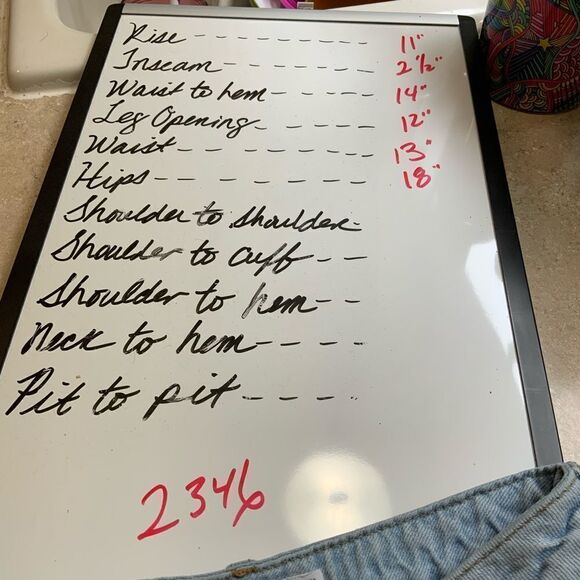 Rise - - - - - - - - - 11"
Inseam - - - - - - - 2 1/2"
Waist to hem - - - - - 14"
Leg Opening - - - - - 12"
Waist - - - - - - - - 13"
Hips - - - - - - - 18"
Shoulder to shoulder -
Shoulder to cuff - -
Shoulder to hem - -
Neck to hem - - - -
Pit to pit - - - -
2346